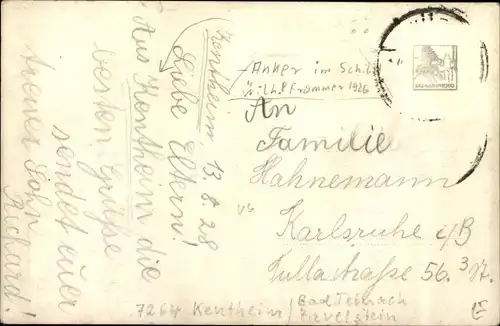 Kentheim, 13.8.28
Liebe Eltern!
Aus Kentheim die
besten Grüße
sendet euer
treuer Sohn
Richard!
Anker im Schild
Wilh. Frommer 1926
An
Familie
Hahnemann
Karlsruhe i/B
Tullastraße 56. 3 St.
7264 Kentheim / Bad Teinach
Zavelstein